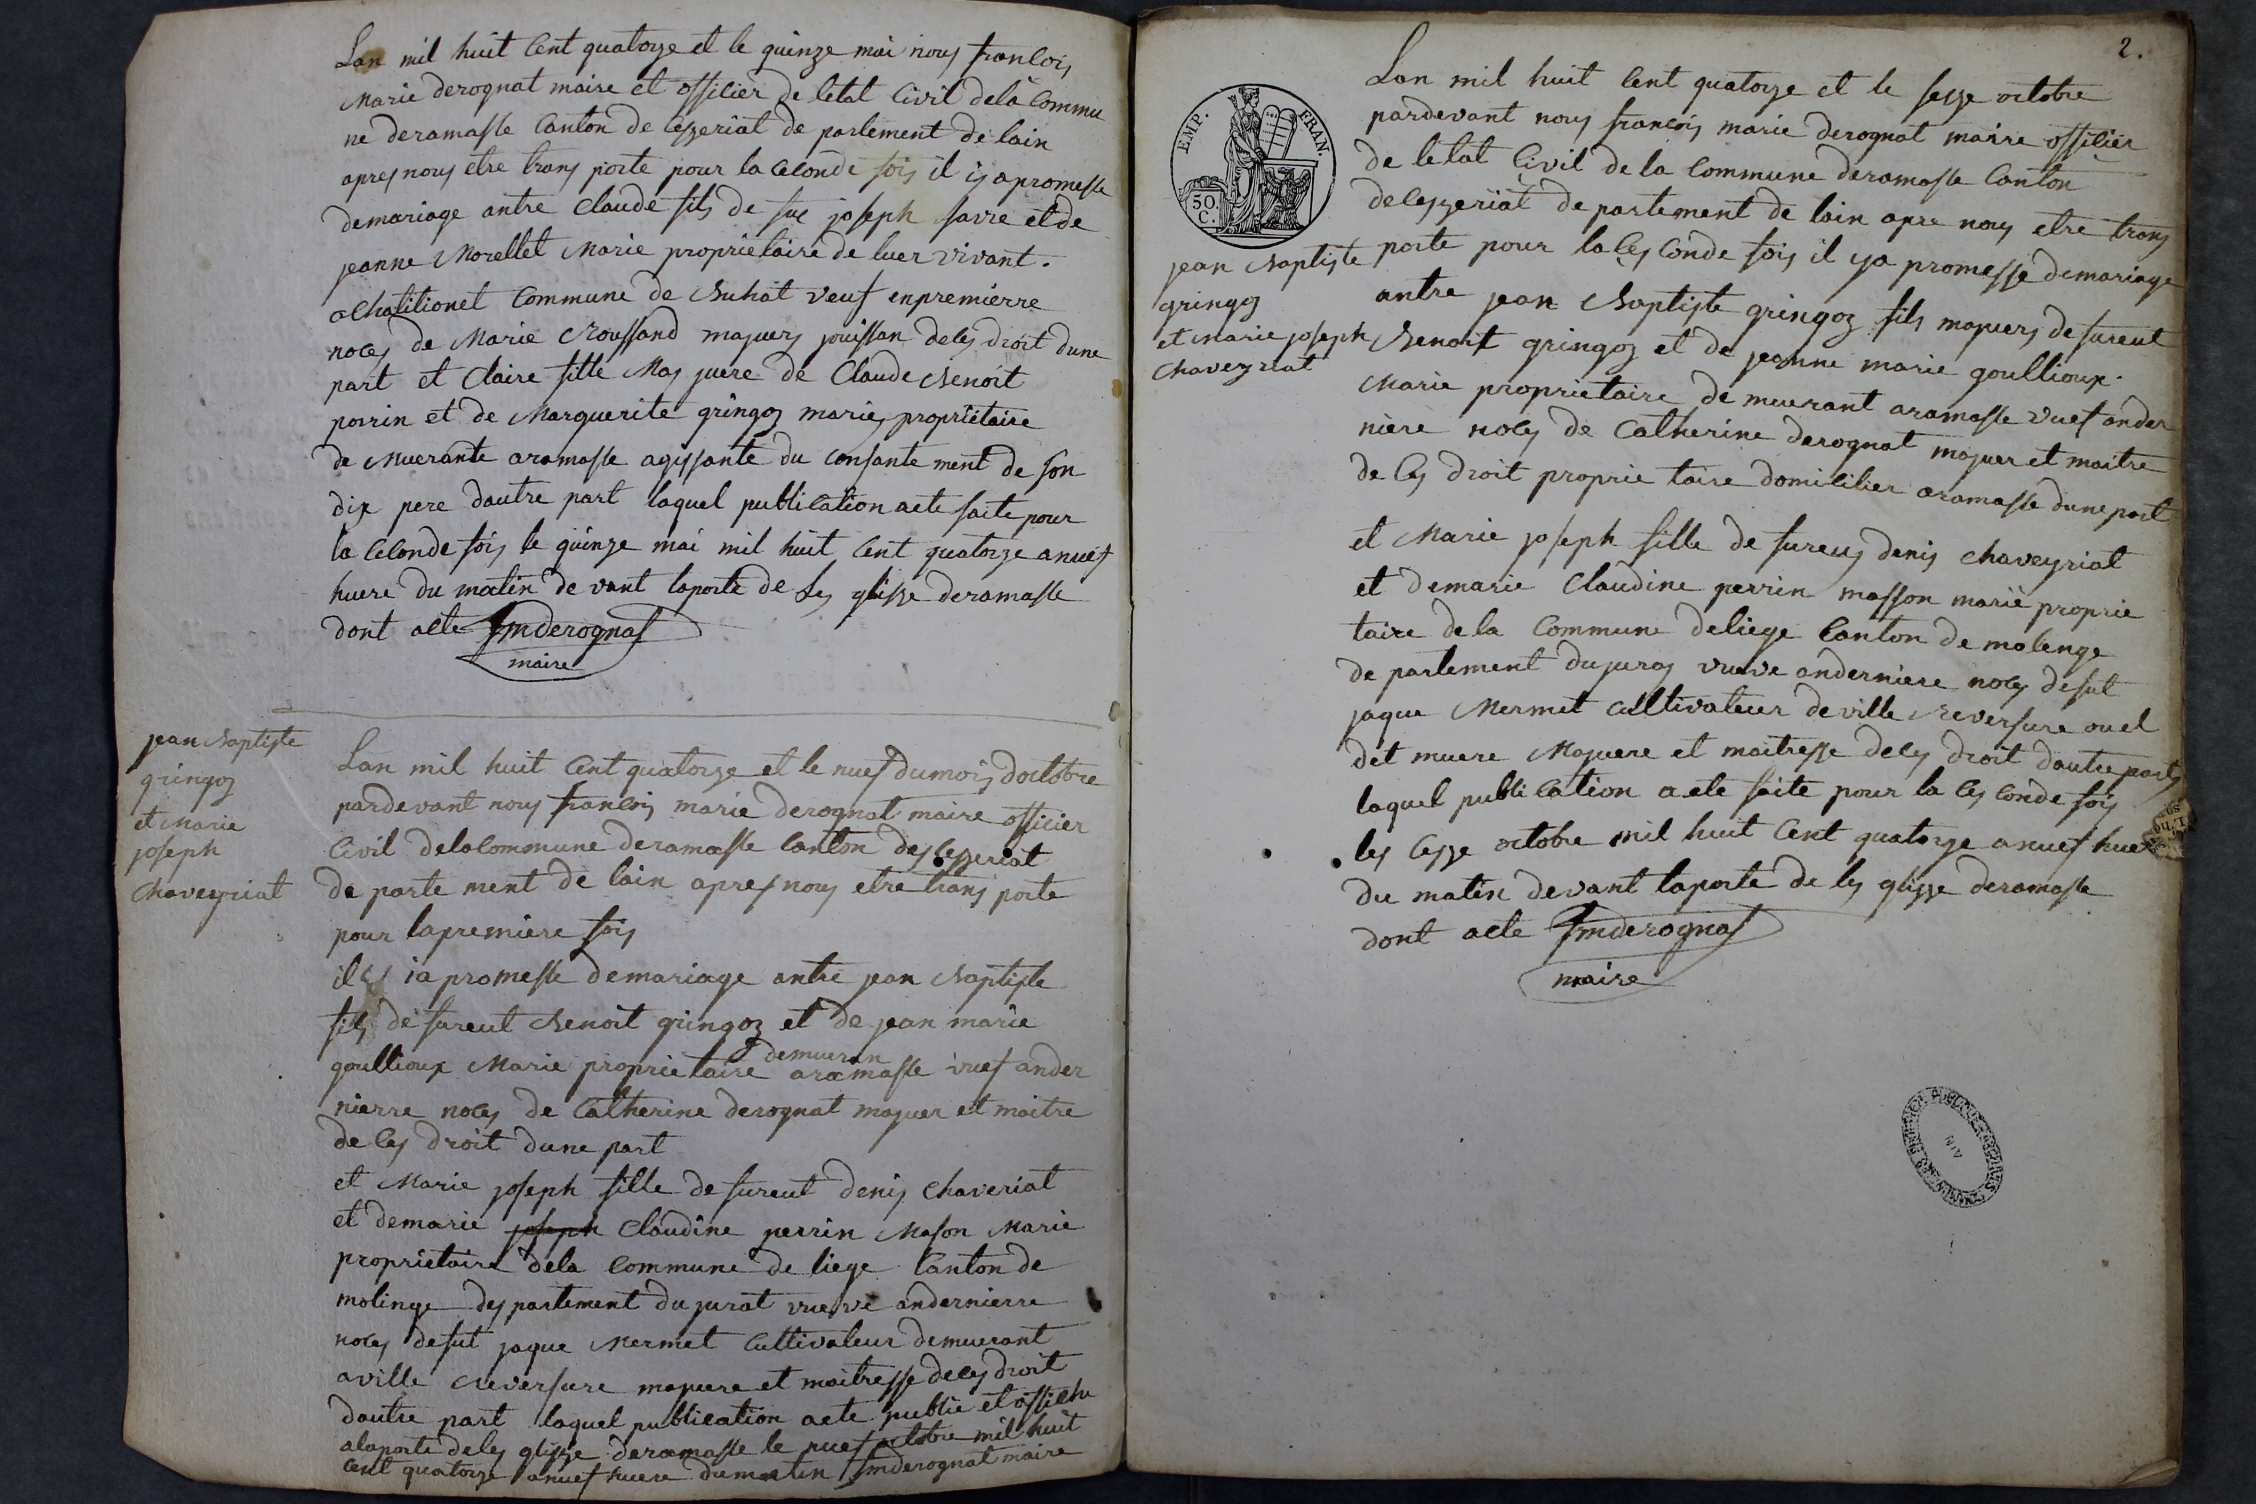 Lan mil huit Cent quatorze et le quinze mai nous francois
Marie derognat maire et officier de letat Civil dela Commu
ne deramasse Canton de Cezzeriat de partement de lain
apres nous etre trans porte pour la Celonde fois il is apromesse
demariage antre Claude fils de fue joseph favre et de
jeanne Morellet Marie proprietaire de luer vivant.
a Chatilionet Commune de Suhat veuf enpremierre
noces de Marie Croussand majuers jouissan de les droit dune
part et Claire fille Mas juere de Claude Benoit
perrin et de Marguerite gringoz maries proprietaire
de Muerante aramasse agissante du consante ment de son
dix pere dautre part laquel publication aete faite pour
la Celonde fois le quinze mai mil huit Cent quatorze anuef
huere du matin de vant laporte de les glisse deramasse
dont acte fmderognat
maire
jean Baptiste
gringoz
et Marie
joseph
Chaveyriat
Lan mil huit Cent quatorze et le nuef dumois doctobre
pardevant nous francois marie derognat maire officier
Civil delacommune deramasse Canton des Cezzeriat
de parte ment de lain apres nous etre trans porte
pour lapremiere fois
il ia promesse demariage antre jean Baptiste
fils de fureut Benoit gringoz et de jean marie
demueran
goullioux Marie proprietaire aramasse vuef ander
nierre noces de Catherine derognat majuer et maitre
de les droit dune part
et Marie joseph fille de fureut denis Chaveriat
et demarie joseph Claudine perrin Mason Marie
proprietaire dela Commune de liege Canton de
molinge des partement du jurat vuerve andernierre
noces defut jaque Mermet Cultivateur demuerant
aville Reversure majuere et maitresse deces droit
dautre part laquel publication aete publie et affiche
alaporte deles glisse deramasse le nuef octobre mil huit
Cent quatorze anuef huere dumatin fmderognat maire
2.
EMP. FRAN.
50
C.
Lan mil huit Cent quatorze et le sezze octobre
pardevant nous francois marie derognat maire officier
de letat Civil de la Commune deramasse Canton
deceszeriat de partement de lain apre nous etre trans
porte pour la Ces Conde fois il ya promesse demariage
jean Baptiste
gringoz
et Marie joseph
Chaveyriat
antre jean Baptiste gringoz fils majuers de fureut
Benoit gringoz et de jeanne marie goullioux
Marie proprietaire de muerant aramasse vuef ander
niere noces de Catherine derognat majuer et maitre
de Ces droit proprie taire domicilier aramasse dune part
et Marie joseph fille de fureus denis Chaveyriat
et demarie Claudine perrin masson marie proprie
taire de la Commune deliege Canton de molenge
de partement du juras vueve anderniere noces defut
jaque Mermet Cultivateur deville Reversure ouel
det muere Majuere et maitresse deces droit dautre parts
laquel publication aete faite pour la Ces Conde fois
les Cezze octobre mil huit Cent quatorze anuef huere
du matin devant laporte de les glisse deramasse
dont acte fmderognat
maire
AIN